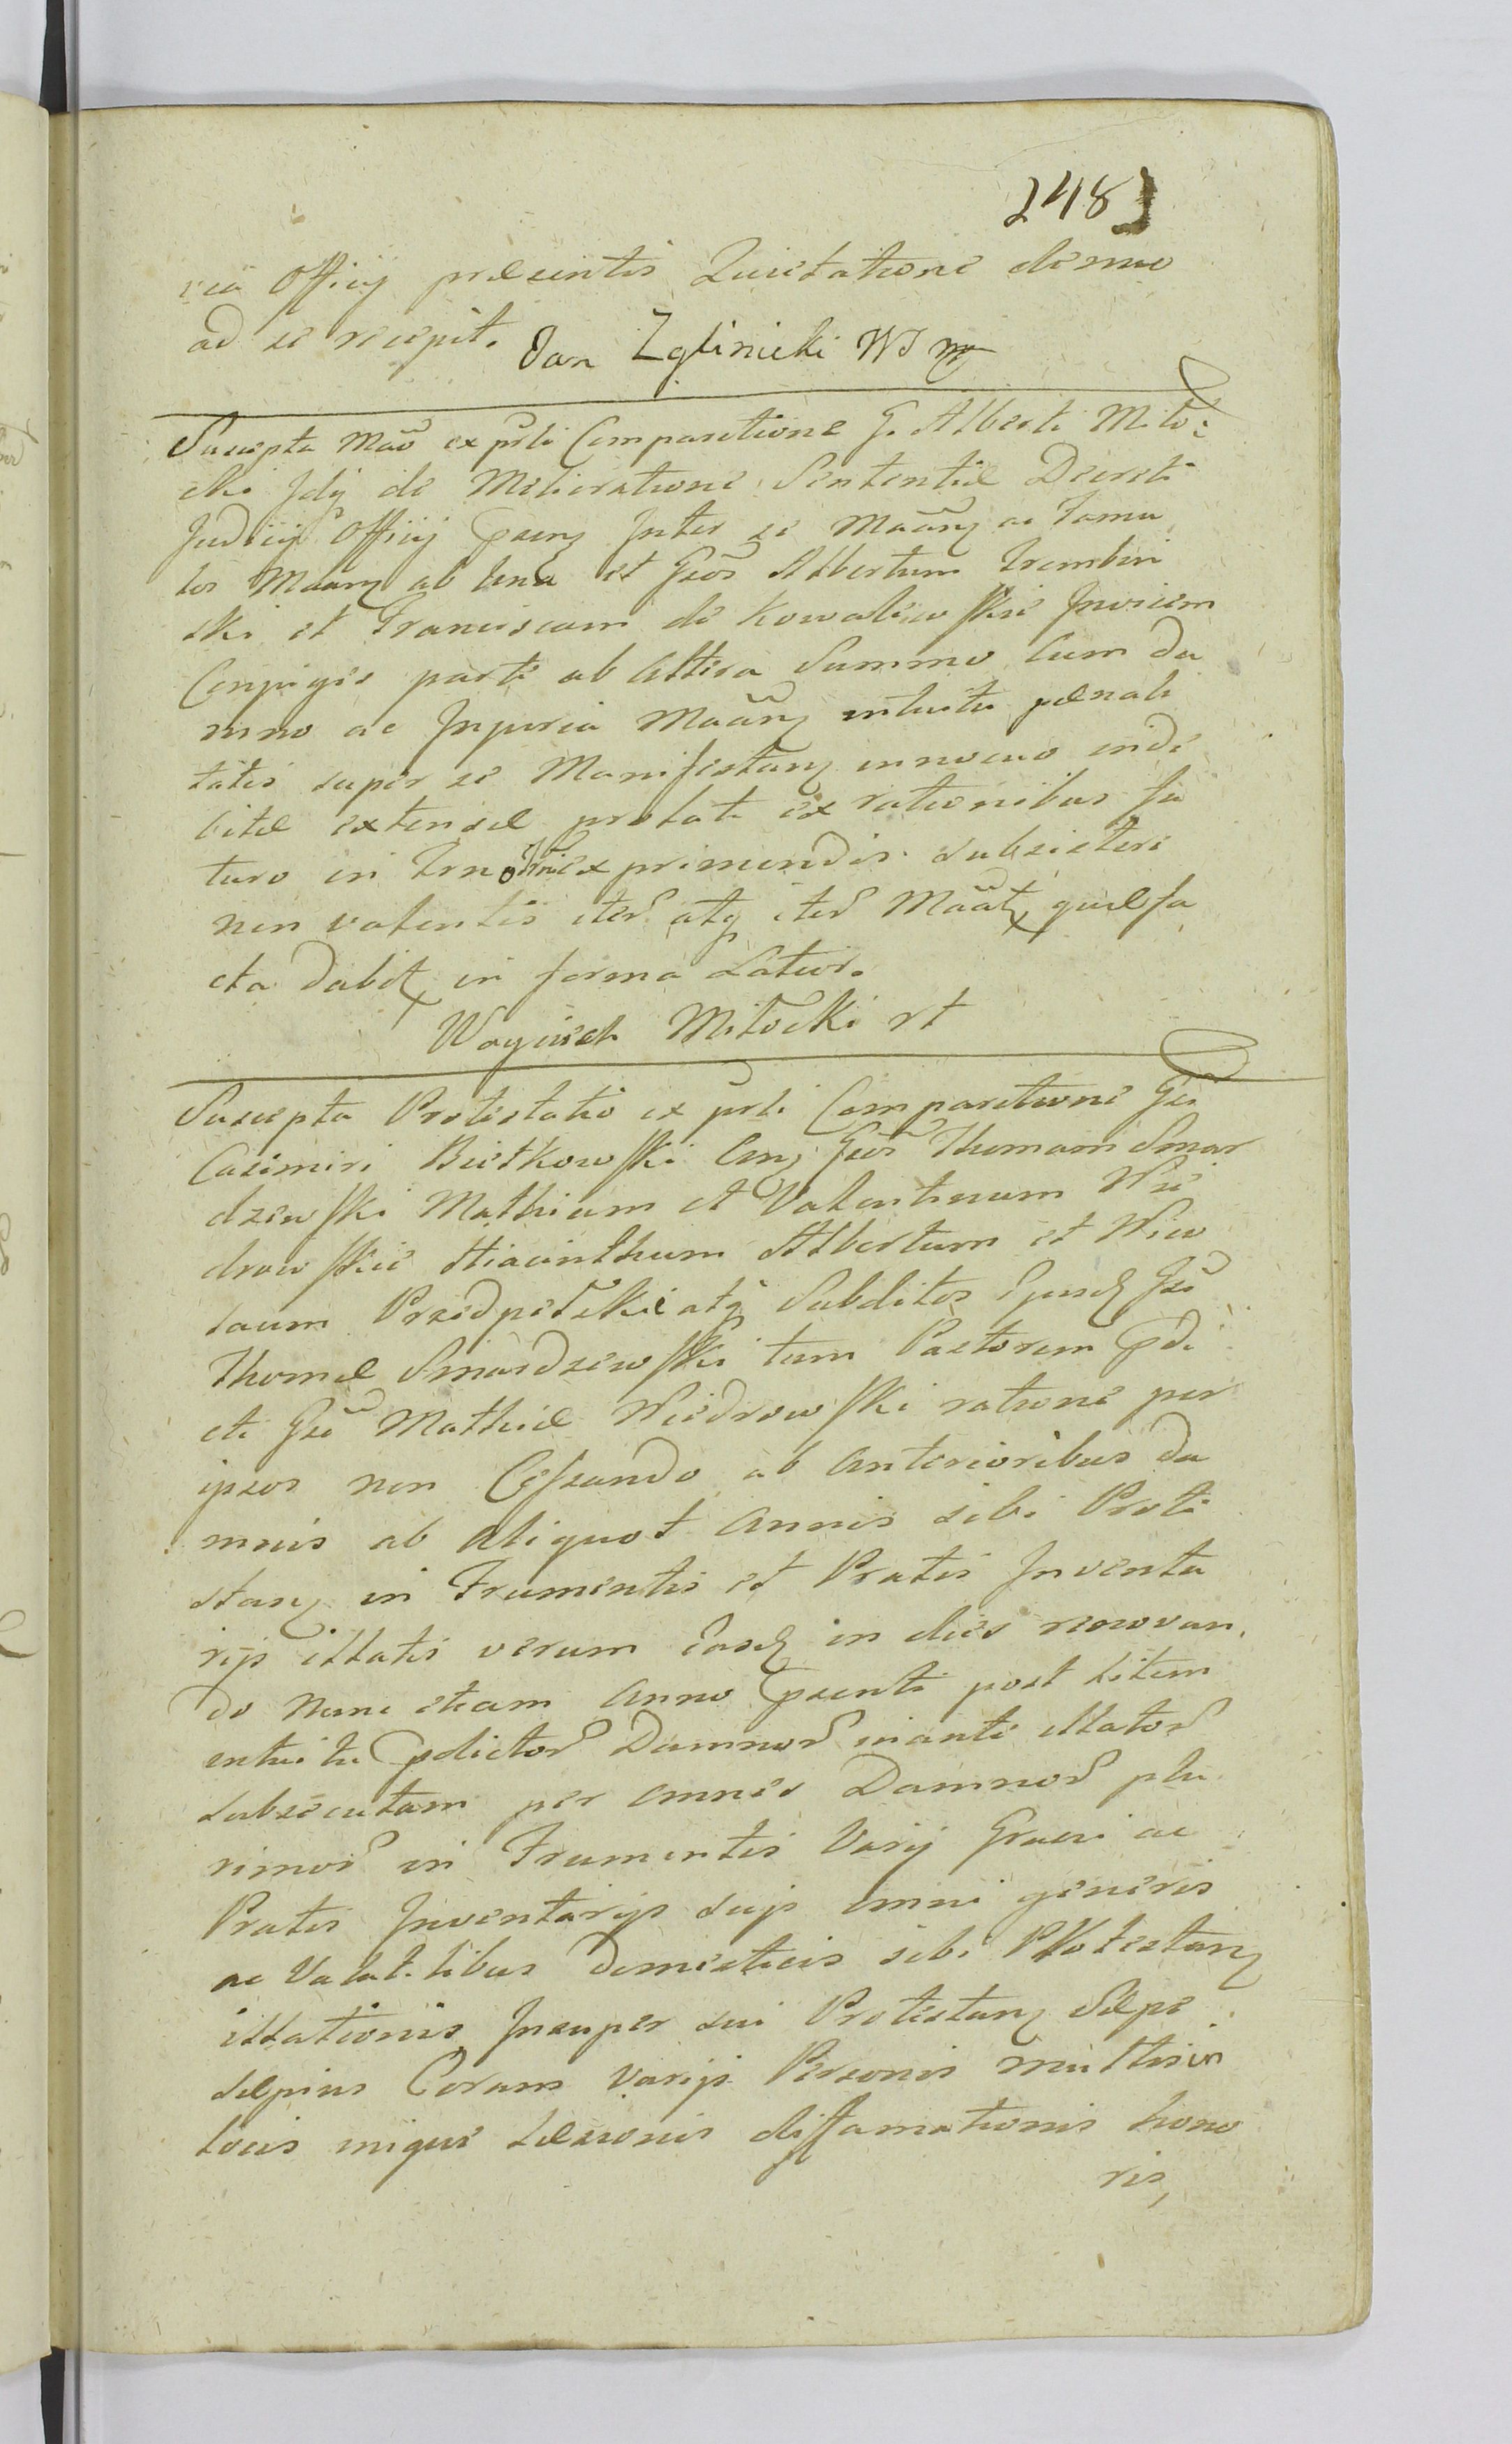 248
rea Officij praesentis Quietatione denuo
ad se recepit. Jan Zglinicki WS mp
Suscepta Mão ex prli Comparitione G. Alberti Miło
cki Jdq de Melioratione Sententiae Decreti
Judicij Officij Psenq Inter se Mãanq ac Famu
los Mãanq ab una et Gsõs Albertum Trembin
ski et Franciscam de Kowalewskie Invicem
Conjuges parte ab Altera Summo Cum da
mno ac Injuria Mãanq intuitu paenali
tatis super se Manifestanq innocuo inde
bitae extensae probati ex rationibus fu
turo in Trno Irie exprimendis subsistere
non valentis iter atq iter Mããt quae fa
cta dabit in forma Latior.
Woyciech Miłocki rt
Suscepta Protestatio ex prli Comparitione Gsi
Casimiri Biełkowski Cnq Gsos Thomam Smar
dzewski Mathiam et Valentinum Wie
drowskie Hiacinthum Albertum et Nico
laum Przedpełskie atq Subditos Ejusd Gsi
Thomae Smardzewski tum Pastorem Pdi
cti Gsi Mathiae Wiedrowski ratione per
ipsos non Cessando ab Anterioribus Da
mnis ab Aliquot Annis sibi Prote
stanq in Frumentis et Pratis Inventa
rijs illatis verum Easd in dies renovan
do Nunc etiam Anno Psenti post litem
intuitu Pdictor Damnor inante illator
subsecutam per omnes Damnor plu
rimor in Frumentis Varij Grani ac
Pratis Inventarijs suis omni generis
ac Volatilibus domesticis sibi Protestanq
illationis Insuper sui Protestanq Saepe
saepius Coram varijs Personis multis in
locis inique laesionis diffamationis hono
ris,